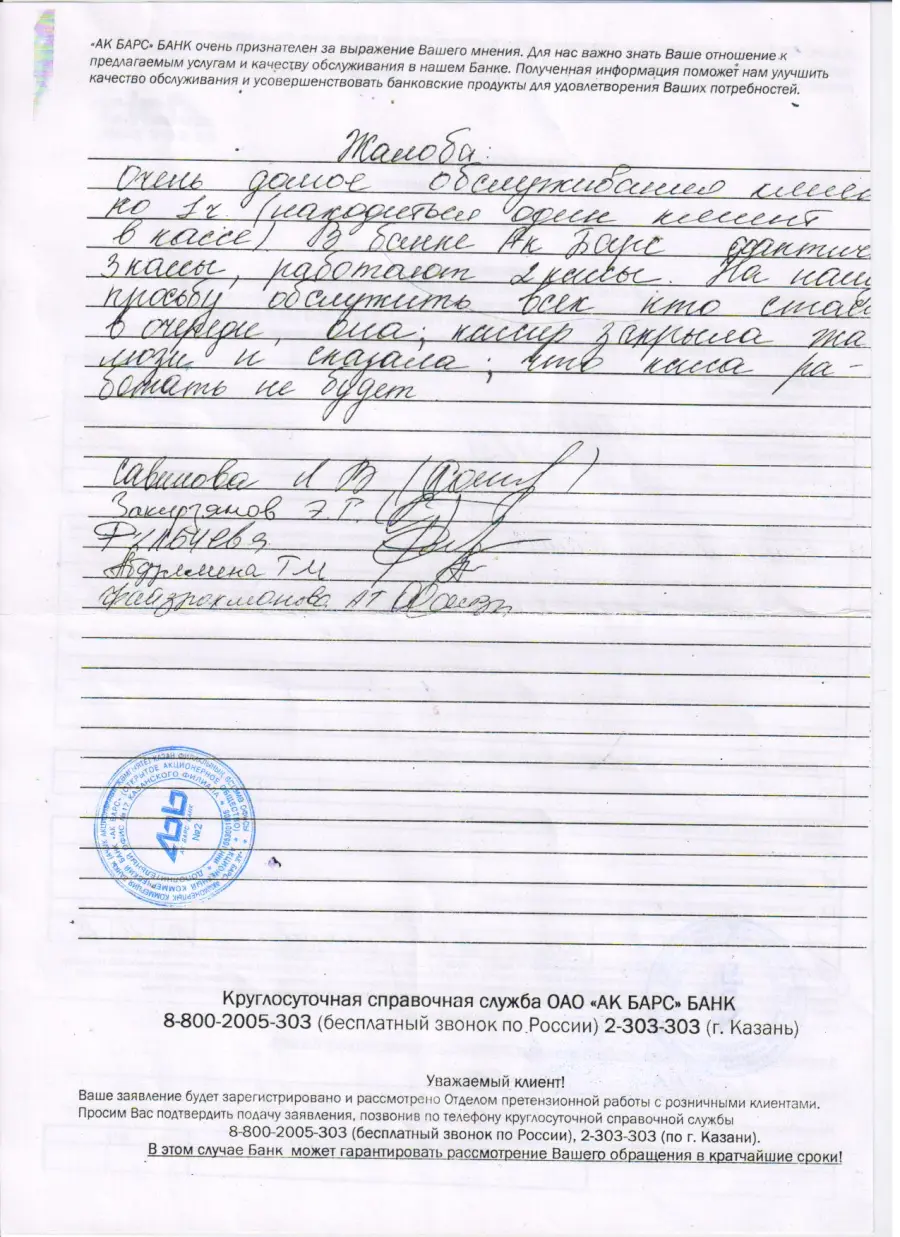 «АК БАРС» БАНК очень признателен за выражение Вашего мнения. Для нас важно знать Ваше отношение к
предлагаемым услугам и качеству обслуживания в нашем Банке. Полученная информация поможет нам улучшить
качество обслуживания и усовершенствовать банковские продукты для удовлетворения Ваших потребностей.
Жалоба:
Очень долгое обслуживание клиен
по 1ч. (находиться один клиент
в кассе). В банке Ак Барс фактич
3 кассы, работают 2 кассы. На наш
просьбу обслужить всех кто стоял
в очереди, она, кассир закрыла жа
люзи и сказала, что касса ра-
ботать не будет
Савинова Л В
Закирзянов Э.Г.
АТ
АК БАРС БАНК
№2
Круглосуточная справочная служба ОАО «АК БАРС» БАНК
8-800-2005-303 (бесплатный звонок по России) 2-303-303 (г. Казань)
Уважаемый клиент!
Ваше заявление будет зарегистрировано и рассмотрено Отделом претензионной работы с розничными клиентами.
Просим Вас подтвердить подачу заявления, позвонив по телефону круглосуточной справочной службы
8-800-2005-303 (бесплатный звонок по России), 2-303-303 (по г. Казани).
В этом случае Банк может гарантировать рассмотрение Вашего обращения в кратчайшие сроки!